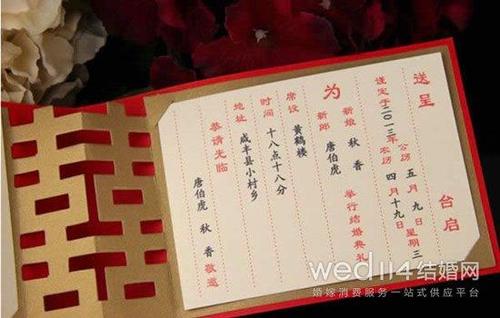 送呈 台启
谨定于二〇一三年 公历 五月九日 星期三
农历 四月十九日
为
新郎 唐伯虎
新娘 秋香 举行结婚典礼
席设 黄鹤楼
时间 十八点十八分
地址 咸丰县小村乡
恭请光临
唐伯虎 秋香 敬邀
wed114结婚网
婚嫁消费服务一站式供应平台